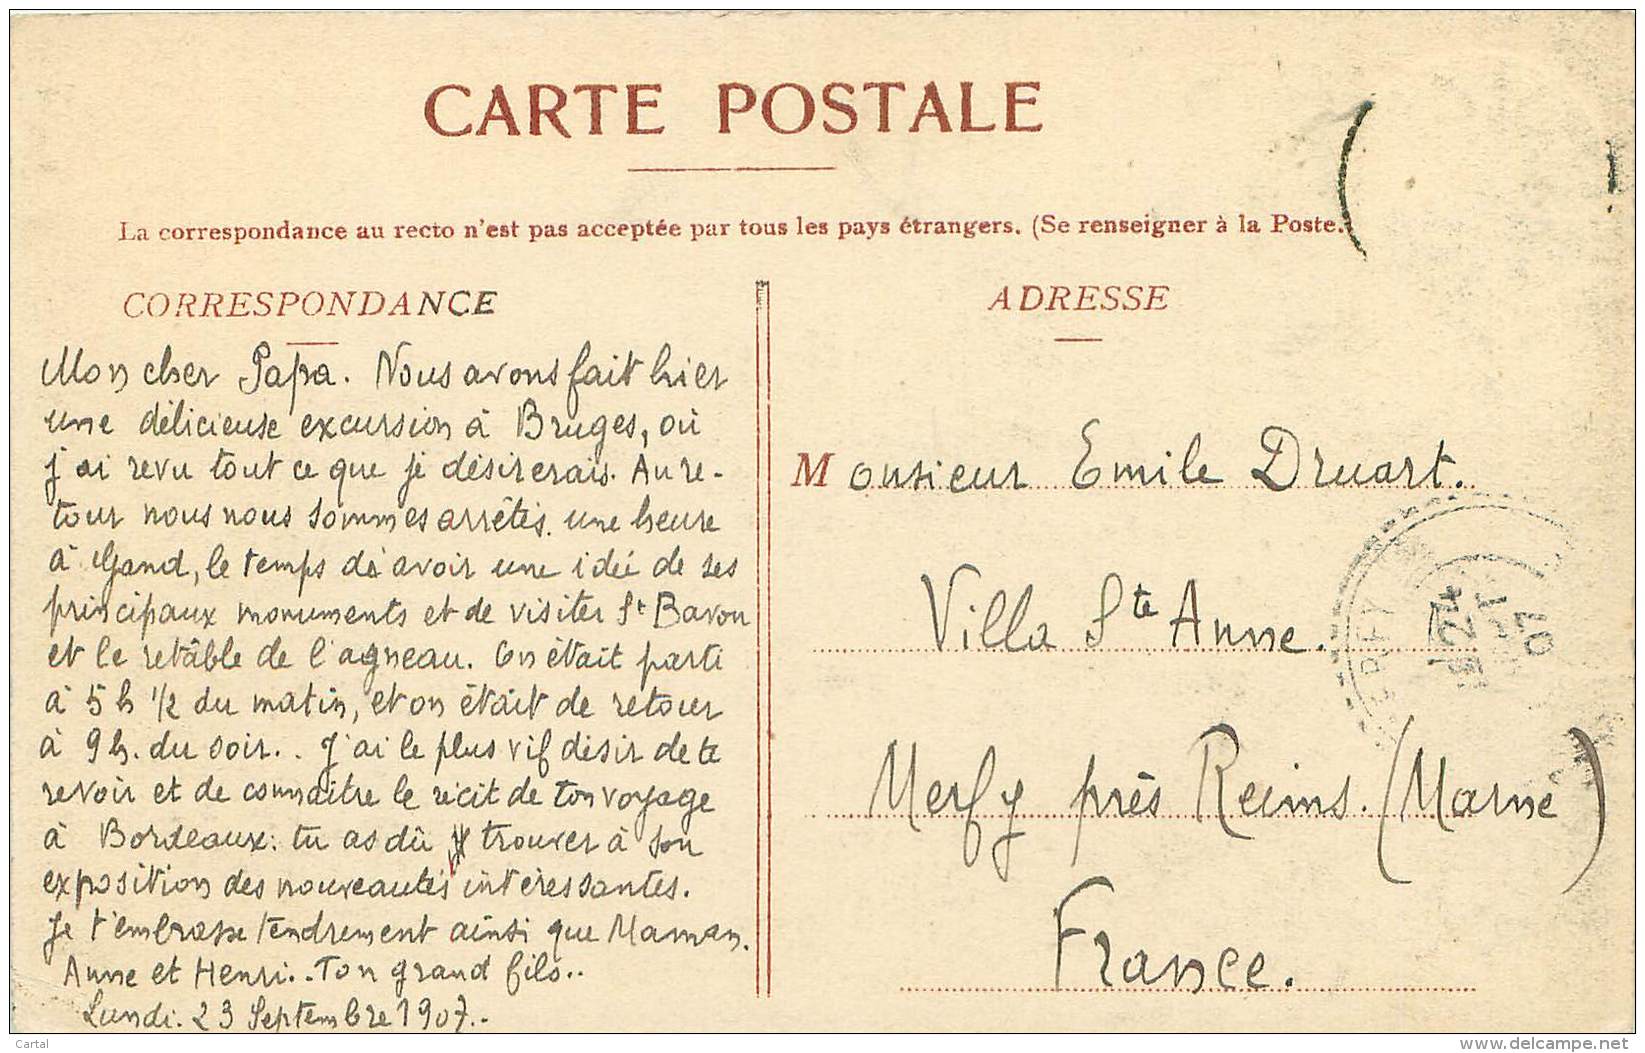 CARTE POSTALE
La correspondance au recto n'est pas acceptée par tous les pays étrangers. (Se renseigner à la Poste.
CORRESPONDANCE
Mon cher Papa. Nous avons fait hier
une délicieuse excursion à Bruges, où
j'ai revu tout ce que je désirerais. Au re-
tour nous nous sommes arrêtés une heure
à Gand, le temps d'avoir une idée de ses
principaux monuments et de visiter St Bavon
et le retâble de l'agneau. On était parti
à 5 h 1/2 du matin, et on était de retour
à 9 h. du soir.. J'ai le plus vif désir de te
revoir et de connaître le récit de ton voyage
à Bordeaux: tu as dû trouver à son
exposition des nouveautés intéressantes.
Je t'embrasse tendrement ainsi que Maman.
Anne et Henri.. Ton grand fils..
Lundi. 23 Septembre 1907..
ADRESSE
Monsieur Emile Druart.
Villa Ste Anne.
Merfy près Reims. (Marne)
France.
24
07
Cartal
www.delcampe.net